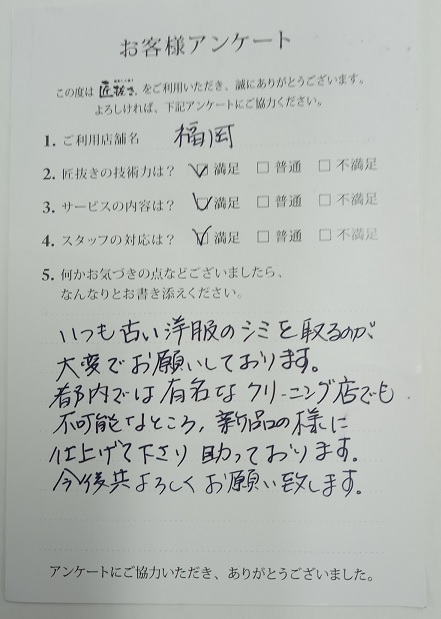 お客様アンケート
この度は 匠抜き をご利用いただき、誠にありがとうございます。
よろしければ、下記アンケートにご協力ください。
1. ご利用店舗名 福岡
2. 匠抜きの技術力は? ☑ 満足 □ 普通 □ 不満足
3. サービスの内容は? ☑ 満足 □ 普通 □ 不満足
4. スタッフの対応は? ☑ 満足 □ 普通 □ 不満足
5. 何かお気づきの点などございましたら、
なんなりとお書き添えください。
いつも古い洋服のシミを取るのが、
大変でお願いしております。
都内では有名なクリーニング店でも
不可能なところ、新品の様に
仕上げて下さり助っております。
今後共よろしくお願い致します。
アンケートにご協力いただき、ありがとうございました。